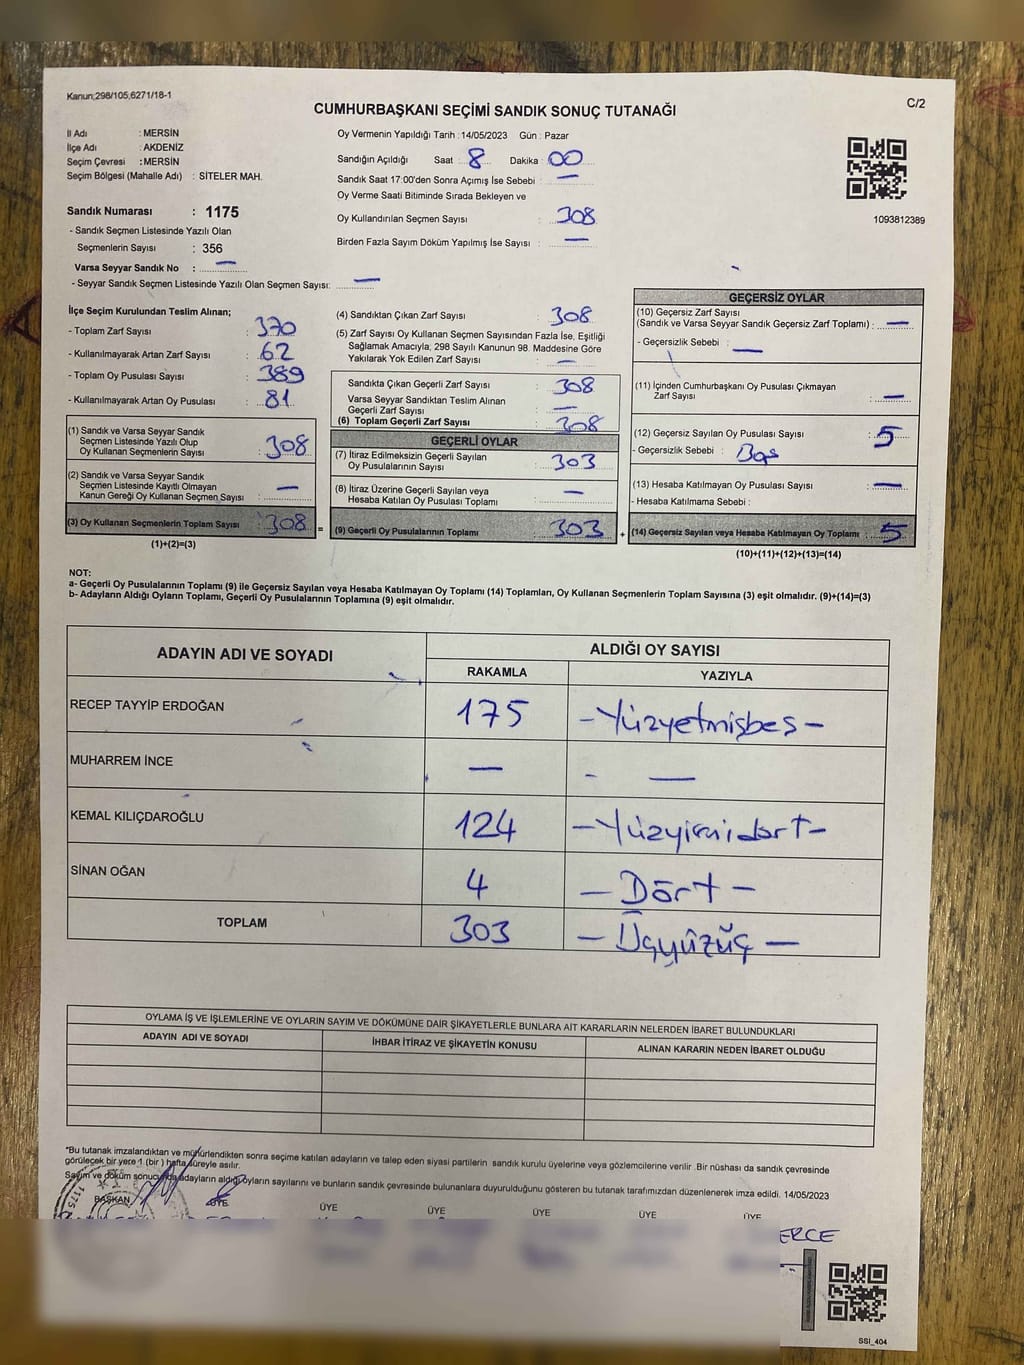 Kanun;298/105,6271/18-1
C/2
CUMHURBAŞKANI SEÇİMİ SANDIK SONUÇ TUTANAĞI
İl Adı : MERSİN
İlçe Adı : AKDENİZ
Seçim Çevresi : MERSİN
Seçim Bölgesi (Mahalle Adı) : SİTELER MAH.
Sandık Numarası : 1175
- Sandık Seçmen Listesinde Yazılı Olan
Seçmenlerin Sayısı : 356
Varsa Seyyar Sandık No : —
- Seyyar Sandık Seçmen Listesinde Yazılı Olan Seçmen Sayısı: —
Oy Vermenin Yapıldığı Tarih : 14/05/2023 Gün : Pazar
Sandığın Açıldığı Saat : 8 Dakika : 00
Sandık Saat 17:00'den Sonra Açımış İse Sebebi : —
Oy Verme Saati Bitiminde Sırada Bekleyen ve
Oy Kullandırılan Seçmen Sayısı : 308
Birden Fazla Sayım Döküm Yapılmış İse Sayısı : —
1093812389
İlçe Seçim Kurulundan Teslim Alınan;
- Toplam Zarf Sayısı : 370
- Kullanılmayarak Artan Zarf Sayısı : 62
- Toplam Oy Pusulası Sayısı : 389
- Kullanılmayarak Artan Oy Pusulası : 81
(1) Sandık ve Varsa Seyyar Sandık
Seçmen Listesinde Yazılı Olup
Oy Kullanan Seçmenlerin Sayısı : 308
(2) Sandık ve Varsa Seyyar Sandık
Seçmen Listesinde Kayıtlı Olmayan
Kanun Gereği Oy Kullanan Seçmen Sayısı : —
(3) Oy Kullanan Seçmenlerin Toplam Sayısı : 308 =
(1)+(2)=(3)
(4) Sandıktan Çıkan Zarf Sayısı : 308
(5) Zarf Sayısı Oy Kullanan Seçmen Sayısından Fazla İse, Eşitliği
Sağlamak Amacıyla; 298 Sayılı Kanunun 98. Maddesine Göre
Yakılarak Yok Edilen Zarf Sayısı : —
Sandıkta Çıkan Geçerli Zarf Sayısı : 308
Varsa Seyyar Sandıktan Teslim Alınan
Geçerli Zarf Sayısı : —
(6) Toplam Geçerli Zarf Sayısı : 308
GEÇERLİ OYLAR
(7) İtiraz Edilmeksizin Geçerli Sayılan
Oy Pusulalarının Sayısı : 303
(8) İtiraz Üzerine Geçerli Sayılan veya
Hesaba Katılan Oy Pusulası Toplamı : —
(9) Geçerli Oy Pusulalarının Toplamı : 303 +
GEÇERSİZ OYLAR
(10) Geçersiz Zarf Sayısı
(Sandık ve Varsa Seyyar Sandık Geçersiz Zarf Toplamı) : —
- Geçersizlik Sebebi : —
(11) İçinden Cumhurbaşkanı Oy Pusulası Çıkmayan
Zarf Sayısı : —
(12) Geçersiz Sayılan Oy Pusulası Sayısı : 5
- Geçersizlik Sebebi : Boş
(13) Hesaba Katılmayan Oy Pusulası Sayısı : —
- Hesaba Katılmama Sebebi :
(14) Geçersiz Sayılan veya Hesaba Katılmayan Oy Toplamı : 5
(10)+(11)+(12)+(13)=(14)
NOT:
a- Geçerli Oy Pusulalarının Toplamı (9) ile Geçersiz Sayılan veya Hesaba Katılmayan Oy Toplamı (14) Toplamları, Oy Kullanan Seçmenlerin Toplam Sayısına (3) eşit olmalıdır. (9)+(14)=(3)
b- Adayların Aldığı Oyların Toplamı, Geçerli Oy Pusulalarının Toplamına (9) eşit olmalıdır.
ADAYIN ADI VE SOYADI
ALDIĞI OY SAYISI
RAKAMLA YAZIYLA
RECEP TAYYİP ERDOĞAN 175 -Yüzyetmişbeş-
MUHARREM İNCE — - —
KEMAL KILIÇDAROĞLU 124 -Yüzyirmidört-
SİNAN OĞAN 4 -Dört-
TOPLAM 303 -Üçyüzüç-
OYLAMA İŞ VE İŞLEMLERİNE VE OYLARIN SAYIM VE DÖKÜMÜNE DAİR ŞİKAYETLERLE BUNLARA AİT KARARLARIN NELERDEN İBARET BULUNDUKLARI
ADAYIN ADI VE SOYADI İHBAR İTİRAZ VE ŞİKAYETİN KONUSU ALINAN KARARIN NEDEN İBARET OLDUĞU
*Bu tutanak imzalandıktan ve mühürlendikten sonra seçime katılan adayların ve talep eden siyasi partilerin sandık kurulu üyelerine veya gözlemcilerine verilir .Bir nüshası da sandık çevresinde
görülecek bir yere 1 (bir ) hafta süreyle asılır.
Sayım ve döküm sonucunda adayların aldığı oyların sayılarını ve bunların sandık çevresinde bulunanlara duyurulduğunu gösteren bu tutanak tarafımızdan düzenlenerek imza edildi. 14/05/2023
BAŞKAN ÜYE ÜYE ÜYE ÜYE ÜYE ÜYE
1175
ERCE
SSI_404